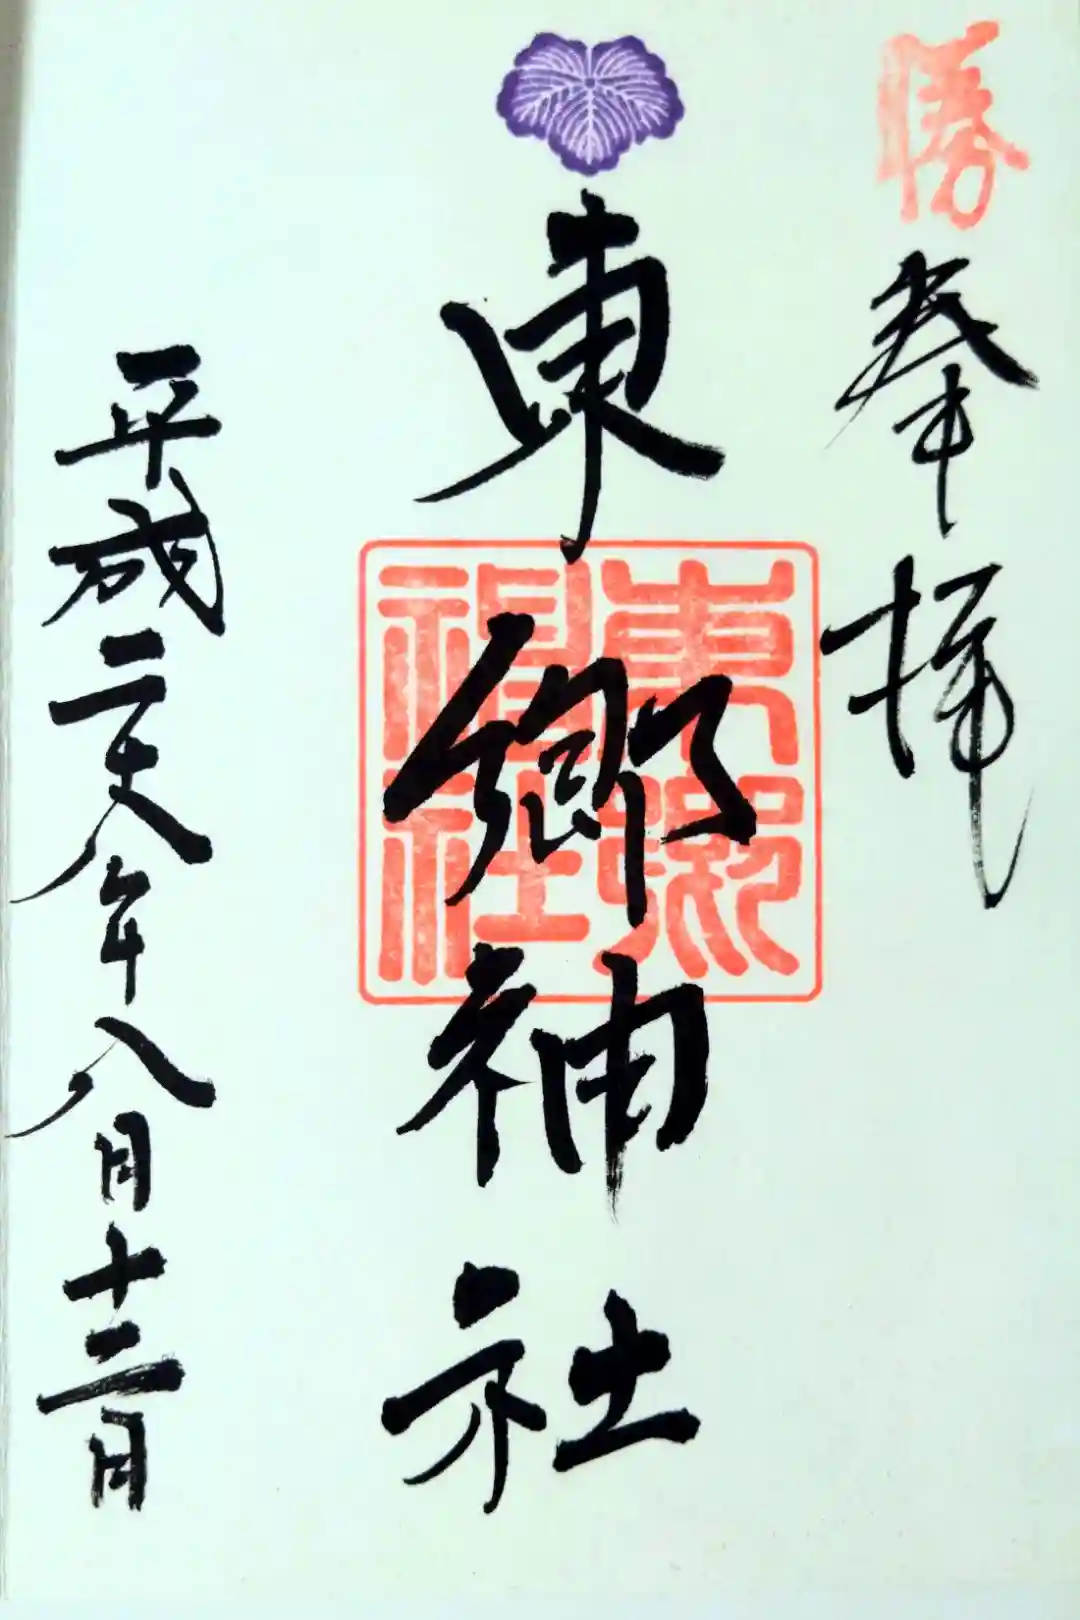 勝
奉拝
東郷神社
東郷
神社
平成二十八年八月十二日